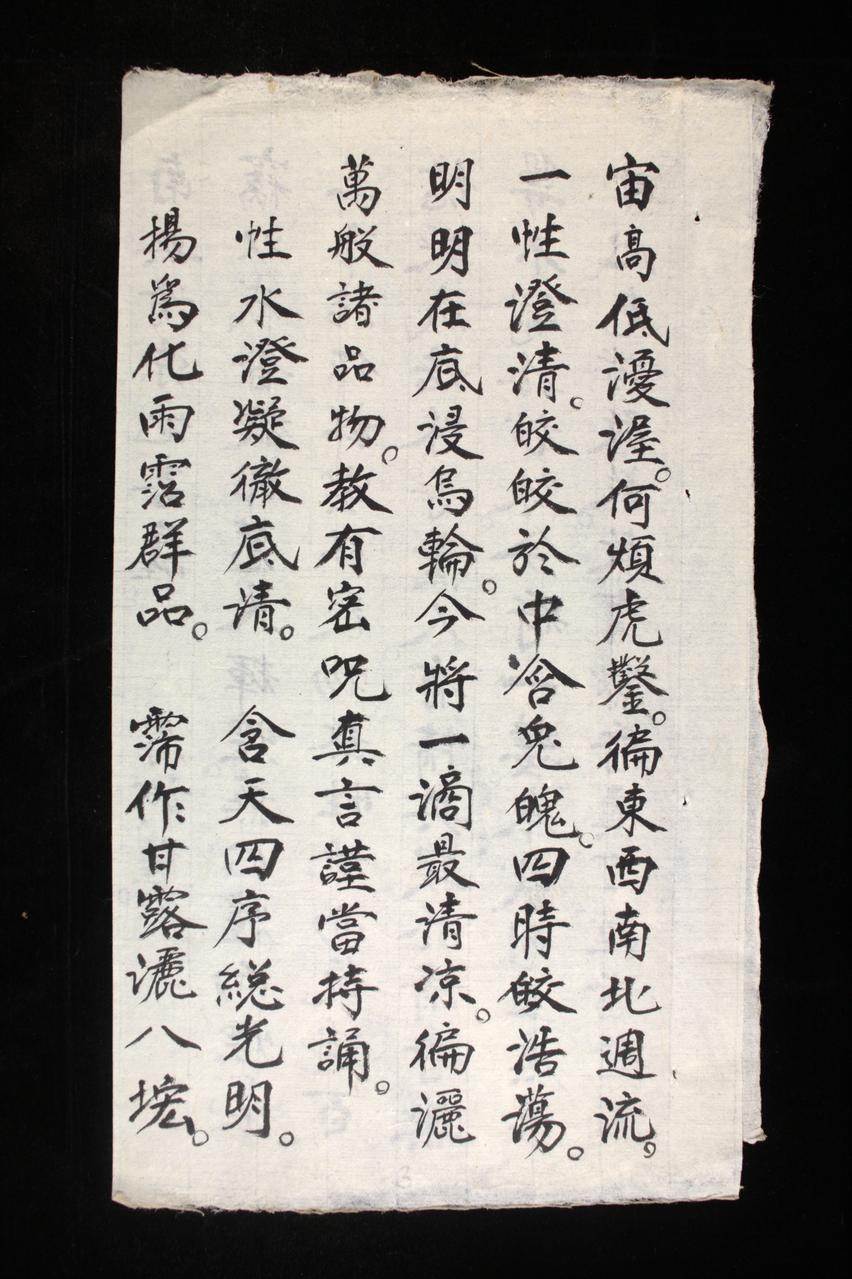 宙高低濅渥。何煩虎鑿。徧東西南北週流。
一性澄清。皎皎於中含兔魄。四時皎浩蕩。
明明在底浸烏輪。今將一滴最清凉。徧灑
萬般諸品物。教有密呪真言謹當持誦。
性水澄凝徹底清。 含天四序総光明。
揚爲化雨霑群品。 霈作甘露灑八埏。
3